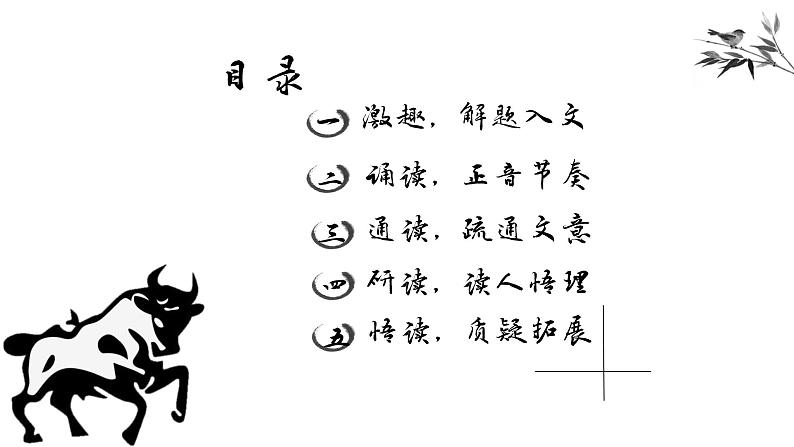 目录
一 激趣，解题入文
二 诵读，正音节奏
三 通读，疏通文意
四 研读，读人悟理
五 悟读，质疑拓展